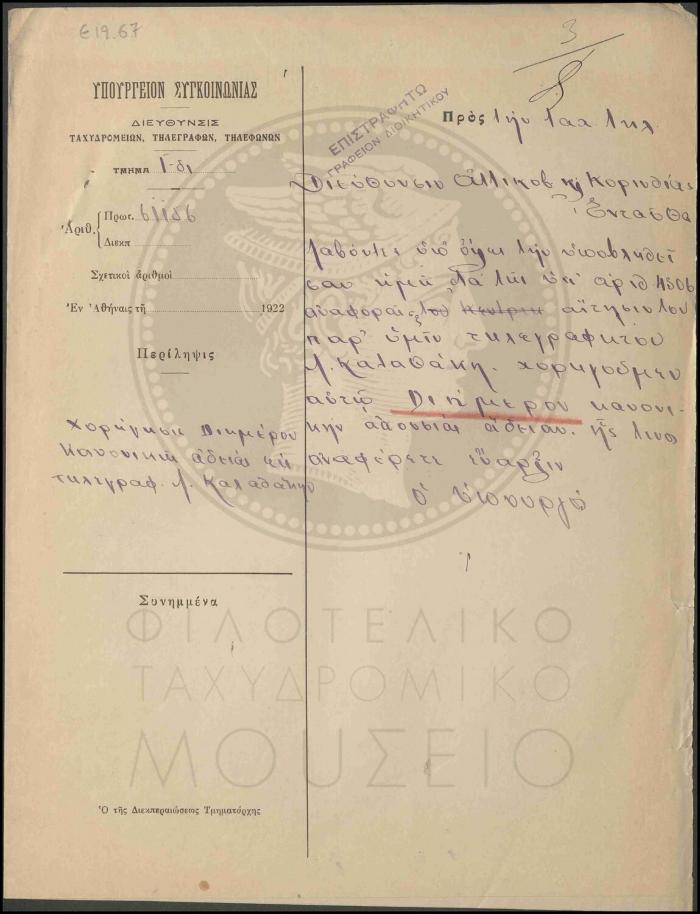 Ε19.67
3
ΥΠΟΥΡΓΕΙΟΝ ΣΥΓΚΟΙΝΩΝΙΑΣ
ΔΙΕΥΘΥΝΣΙΣ
ΤΑΧΥΔΡΟΜΕΙΩΝ, ΤΗΛΕΓΡΑΦΩΝ, ΤΗΛΕΦΩΝΩΝ
ΤΜΗΜΑ
Ἀριθ. Πρωτ.
Διεκπ
Σχετικοὶ ἀριθμοὶ
Ἐν Ἀθήναις τῇ 1922
Περίληψις
Χορήγησις διημέρου
κανονικῆς ἀδείας εἰς
τηλεγραφ. Λ. Καλαθάκην
Συνημμένα
Ὁ τῆς Διεκπεραιώσεως Τμηματάρχης
ΕΠΙΣΤΡΑΦΗΤΩ
ΓΡΑΦΕΙΟΝ ΔΙΟΙΚΗΤΙΚΟΥ
Πρὸς τὴν
Διεύθυνσιν Ἀττικοβ κ Κορινθίας
Ἐνταῦθα
Λαβόντες ὑπ' ὄψει τὴν ὑποβληθεῖ
σαν ἡμῖν διὰ τῆς ὑπ' ἀριθ 4506
ἀναφορᾶς αἴτησιν τοῦ
παρ' ὑμῖν τηλεγραφητοῦ
Λ. Καλαθάκη. χορηγοῦμεν
αὐτῷ διήμερον κανονι-
κὴν ἀπουσίας ἄδειαν. ἧς
ἀναφέρετε ἔναρξιν
Ὁ Ὑπουργὸς
ΦΙΛΟΤΕΛΙΚΟ
ΤΑΧΥΔΡΟΜΙΚΟ
ΜΟΥΣΕΙΟ